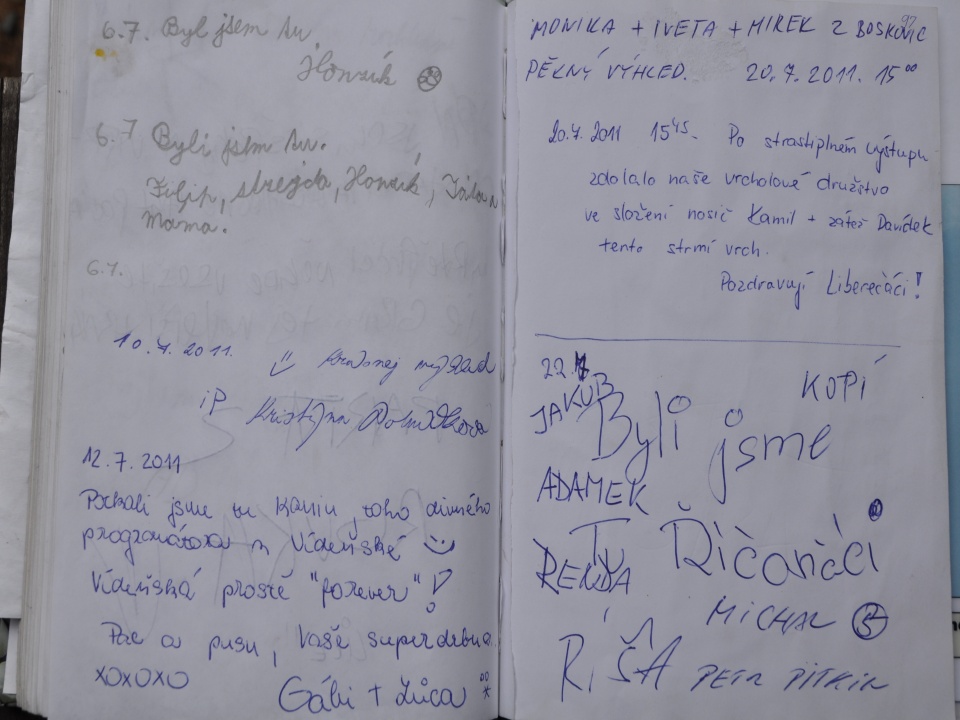 6.7. Byl jsem tu.
Honzík
6.7 Byli jsem tu.
Filip, strejda, Honzík, Táta a
Mama.
6.7.
10.7.2011.
Kristýna
12.7.2011
Potkali jsme tu toho divného
programátora z Vídeňské
Vídeňská prostě "forever"!
Pac a pusu, Vaše superdrbna
XOXOXO
Gábi + Lůca
92
MONIKA + IVETA + MIREK Z BOSKOVIC
PĚKNÝ VÝHLED. 20.7.2011. 15⁰⁰
20.7.2011 15⁴⁵. Po strastiplném výstupu
zdolalo naše vrcholové družstvo
ve složení nosič Kamil + zátěž Davídek
tento strmí vrch.
Pozdravují Liberečáci!
22.7.
KOPÍ
JAKUB
Byli jsme
ADAMEK
TU Řičaňáci
RENDA
MICHAL
RÍŠA PETR PITKIN